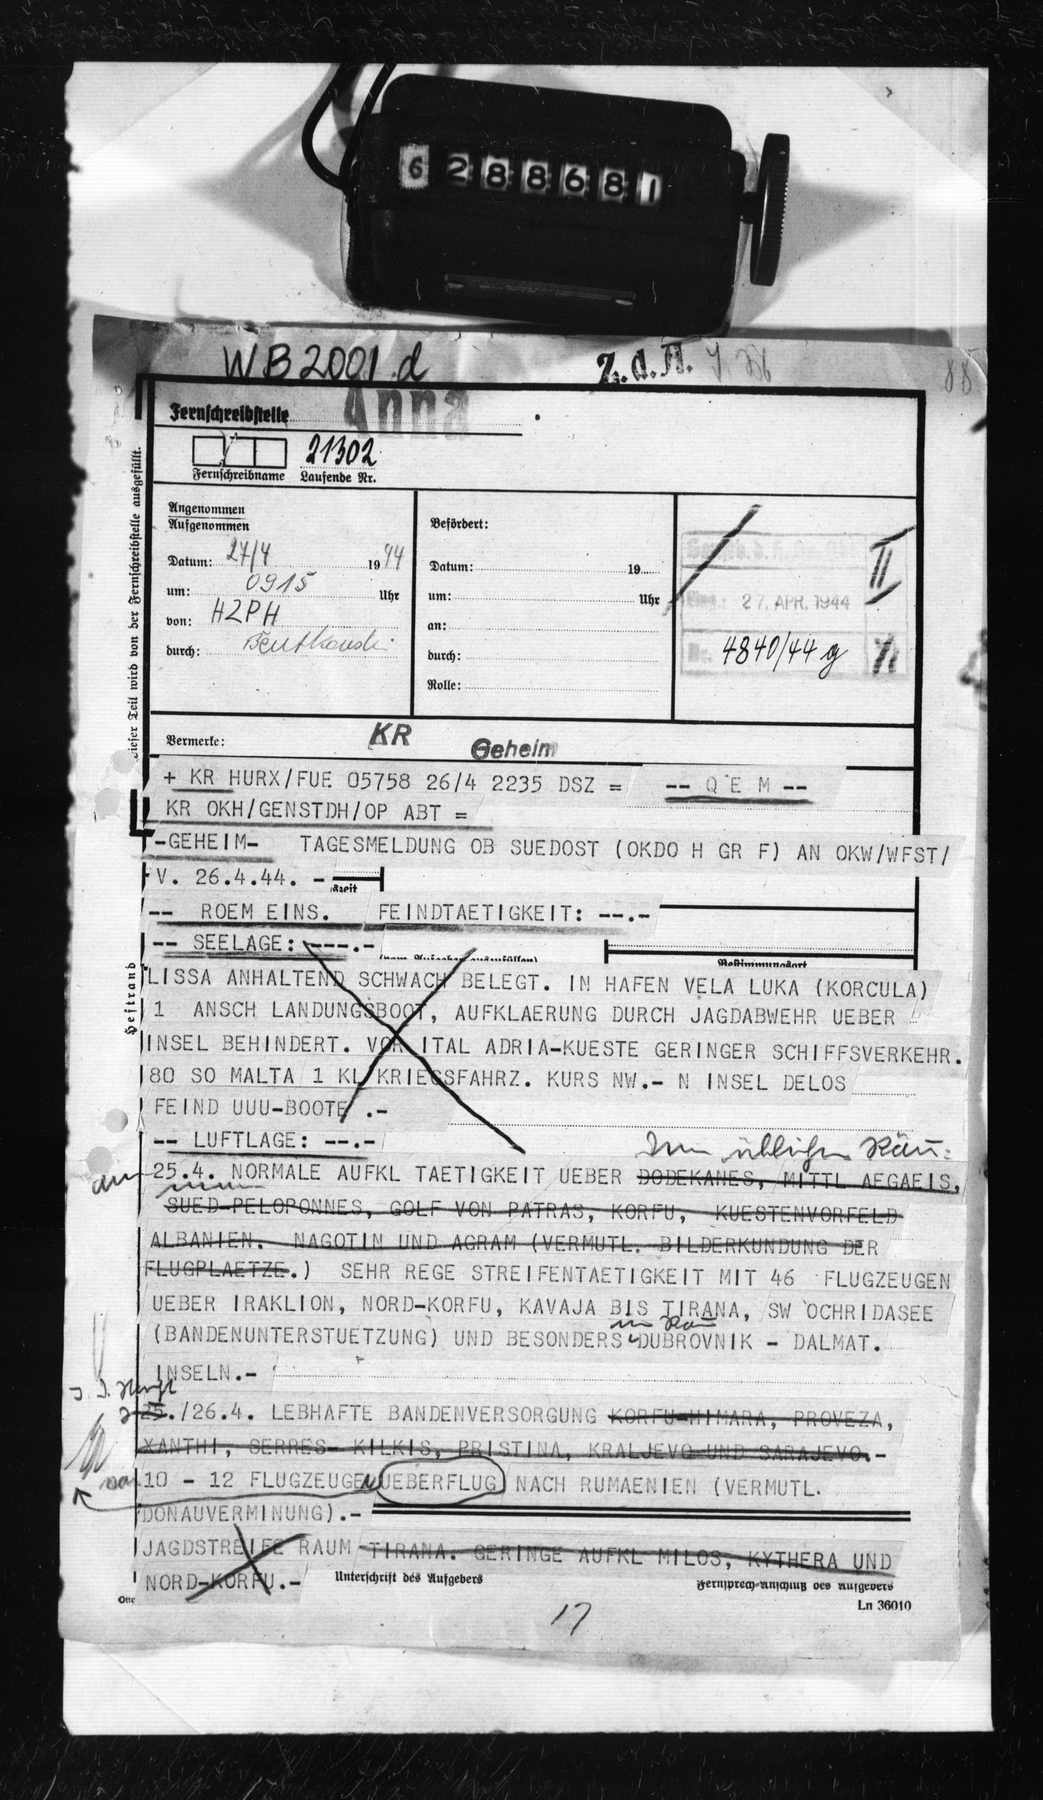 6288681
WB2001.d
Z.d.A.
88
Fernschreibstelle Anna
21302
Fernschreibname Laufende Nr.
Angenommen
Aufgenommen
Datum: 27/4 1944
um: 0915 Uhr
von: HZPH
durch:
Befördert:
Datum: 19
um: Uhr
an:
durch:
Rolle:
II
27. APR. 1944
Nr. 4840/44 g
Dieser Teil wird von der Fernschreibstelle ausgefüllt.
Vermerke: KR Geheim
+ KR HURX/FUE 05758 26/4 2235 DSZ = -- Q E M --
KR OKH/GENSTDH/OP ABT =
-GEHEIM- TAGESMELDUNG OB SUEDOST (OKDO H GR F) AN OKW/WFST/
V. 26.4.44. -
-- ROEM EINS. FEINDTAETIGKEIT: --.-
-- SEELAGE: ---.-
Bestimmungsort
Heftrand
LISSA ANHALTEND SCHWACH BELEGT. IN HAFEN VELA LUKA (KORCULA)
1 ANSCH LANDUNGSBOOT, AUFKLAERUNG DURCH JAGDABWEHR UEBER
INSEL BEHINDERT. VOR ITAL ADRIA-KUESTE GERINGER SCHIFFSVERKEHR.
80 SO MALTA 1 KL KRIEGSFAHRZ. KURS NW.- N INSEL DELOS
FEIND UUU-BOOTE .-
-- LUFTLAGE: --.-
Im üblichen Räu:
am 25.4. NORMALE AUFKL TAETIGKEIT UEBER DODEKANES, MITTL AEGAEIS,
SUED-PELOPONNES, GOLF VON PATRAS, KORFU, KUESTENVORFELD
ALBANIEN. NAGOTIN UND AGRAM (VERMUTL. BILDERKUNDUNG DER
FLUGPLAETZE.) SEHR REGE STREIFENTAETIGKEIT MIT 46 FLUGZEUGEN
UEBER IRAKLION, NORD-KORFU, KAVAJA BIS TIRANA, SW OCHRIDASEE
im Raum
(BANDENUNTERSTUETZUNG) UND BESONDERS DUBROVNIK - DALMAT.
INSELN.-
25./26.4. LEBHAFTE BANDENVERSORGUNG KORFU-HIMARA, PROVEZA,
XANTHI, SERRES- KILKIS, PRISTINA, KRALJEVO UND SARAJEVO.-
10 - 12 FLUGZEUGEN UEBERFLUG NACH RUMAENIEN (VERMUTL.
DONAUVERMINUNG).-
JAGDSTREIFE RAUM TIRANA. GERINGE AUFKL MILOS, KYTHERA UND
NORD-KORFU.-
Unterschrift des Aufgebers Fernsprech-Anschluß des Aufgebers
Ln 36010
17